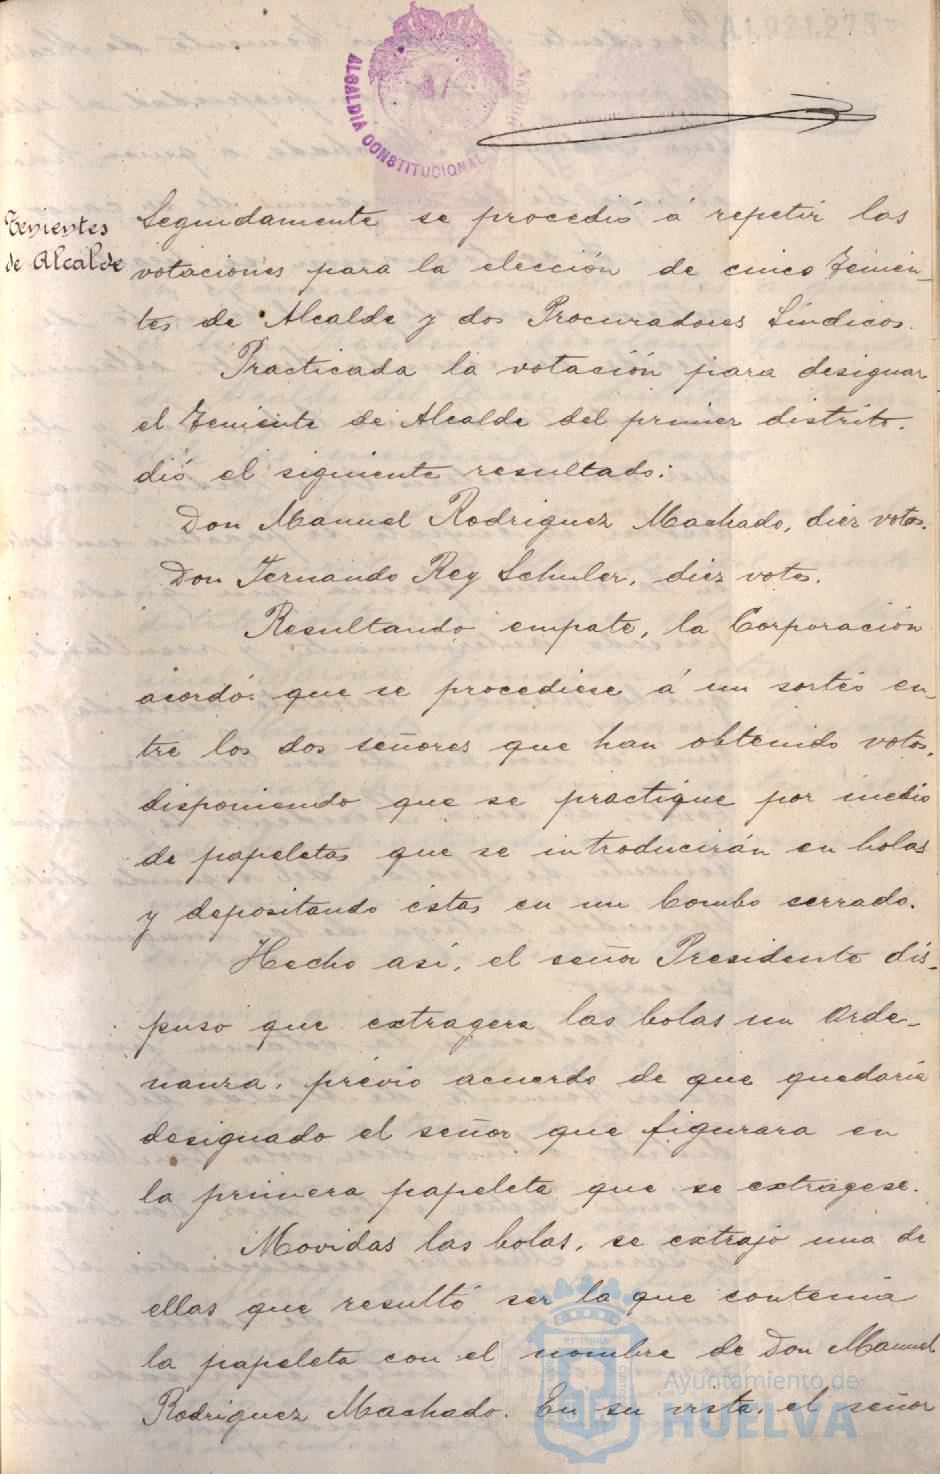 ALCALDIA CONSTITUCIONAL
A1.921.277
Tenientes
de Alcalde
Seguidamente se procedió á repetir las
votaciones para la elección de cinco Tenien-
tes de Alcalde y dos Procuradores Síndicos.
Practicada la votación para designar
el Teniente de Alcalde del primer distrito.
dió el siguiente resultado:
Don Manuel Rodriguez Machado, diez votos.
Don Fernando Rey Schuler, diez votos.
Resultando empate, la Corporación
acordó que se procediese á un sorteo en-
tre los dos señores que han obtenido votos,
disponiendo que se practique por medio
de papeletas que se introducirán en bolas
y depositando éstas en un bombo cerrado.
Hecho así, el señor Presidente dis-
puso que extragera las bolas un Orde-
nanza, prévio acuerdo de que quedaría
designado el señor que figurara en
la primera papeleta que se extragese.
Movidas las bolas, se extrajo una de
ellas que resultó ser la que contenia
la papeleta con el nombre de Don Manuel
Rodriguez Machado. En su vista, el señor
Ayuntamiento de
HUELVA